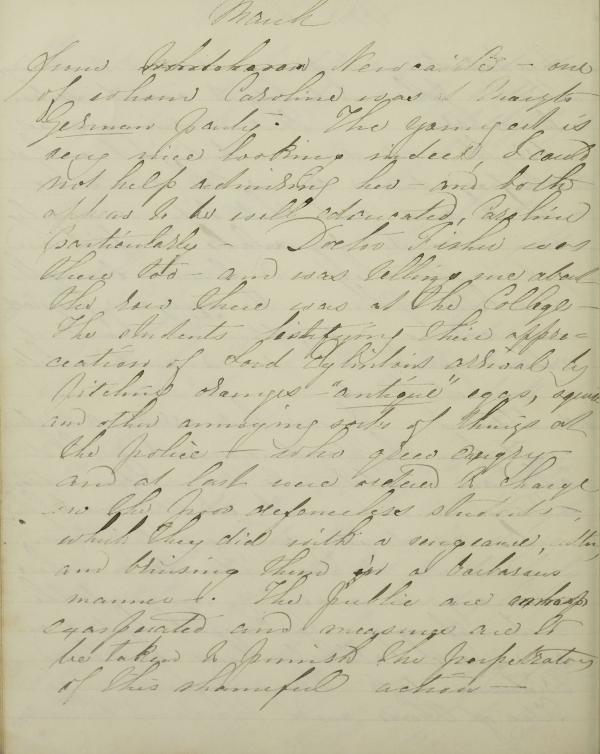 March
from Newcastle - one
of whom Caroline was at
German party. The youngest is
very nice looking indeed, I could
not help admiring her - and both
appear to be well educated, Caroline
particularly - Doctor Fisher was
there too - and was telling me about
the row there was at the College -
The students testifying their appre=
ciation of Lord Eglinton's arrival by
pitching oranges - "antique" eggs, squibs
and other annoying sorts of things at
the police - who grew angry
and at last were ordered to charge
on the poor defenceless students -,
which they did with a vengeance,
and bruising them in a barbarous
manner -. The public are
exasperated and measures are to
be taken to punish the perpetrators
of this shameful action -